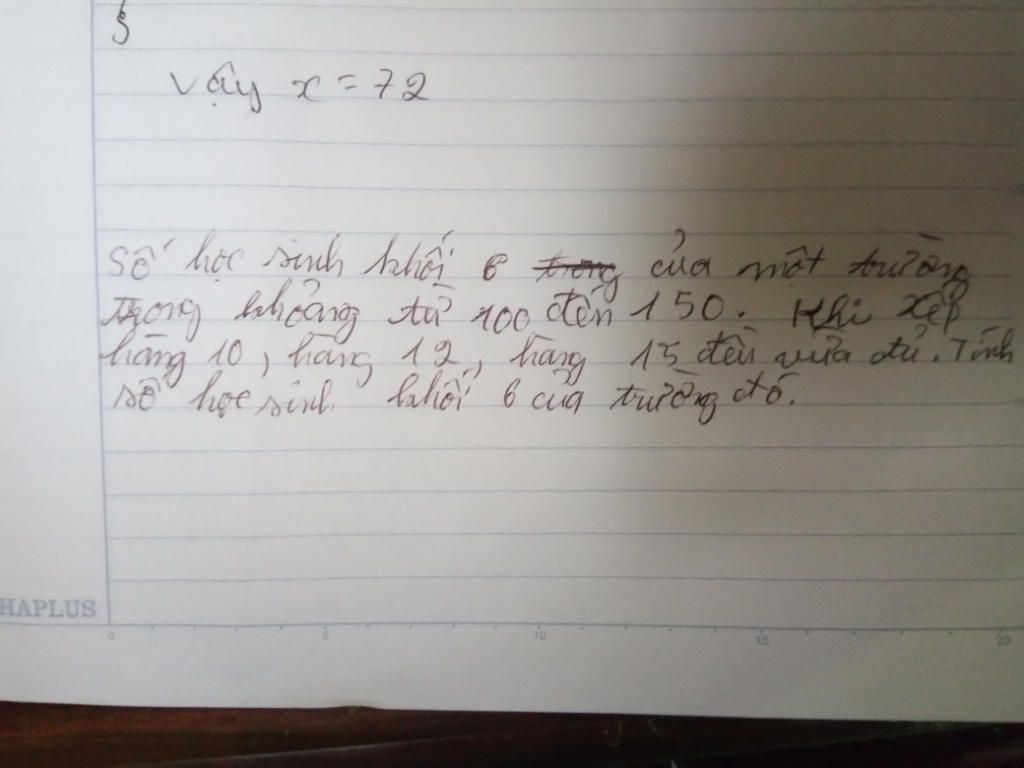 Vậy x = 72
Số học sinh khối 6 trong của một trường
Trong khoảng từ 100 đến 150. Khi xếp
hàng 10, hàng 12, hàng 15 đều vừa đủ. Tính
số học sinh khối 6 của trường đó.
HAPLUS
0 5 10 15 20